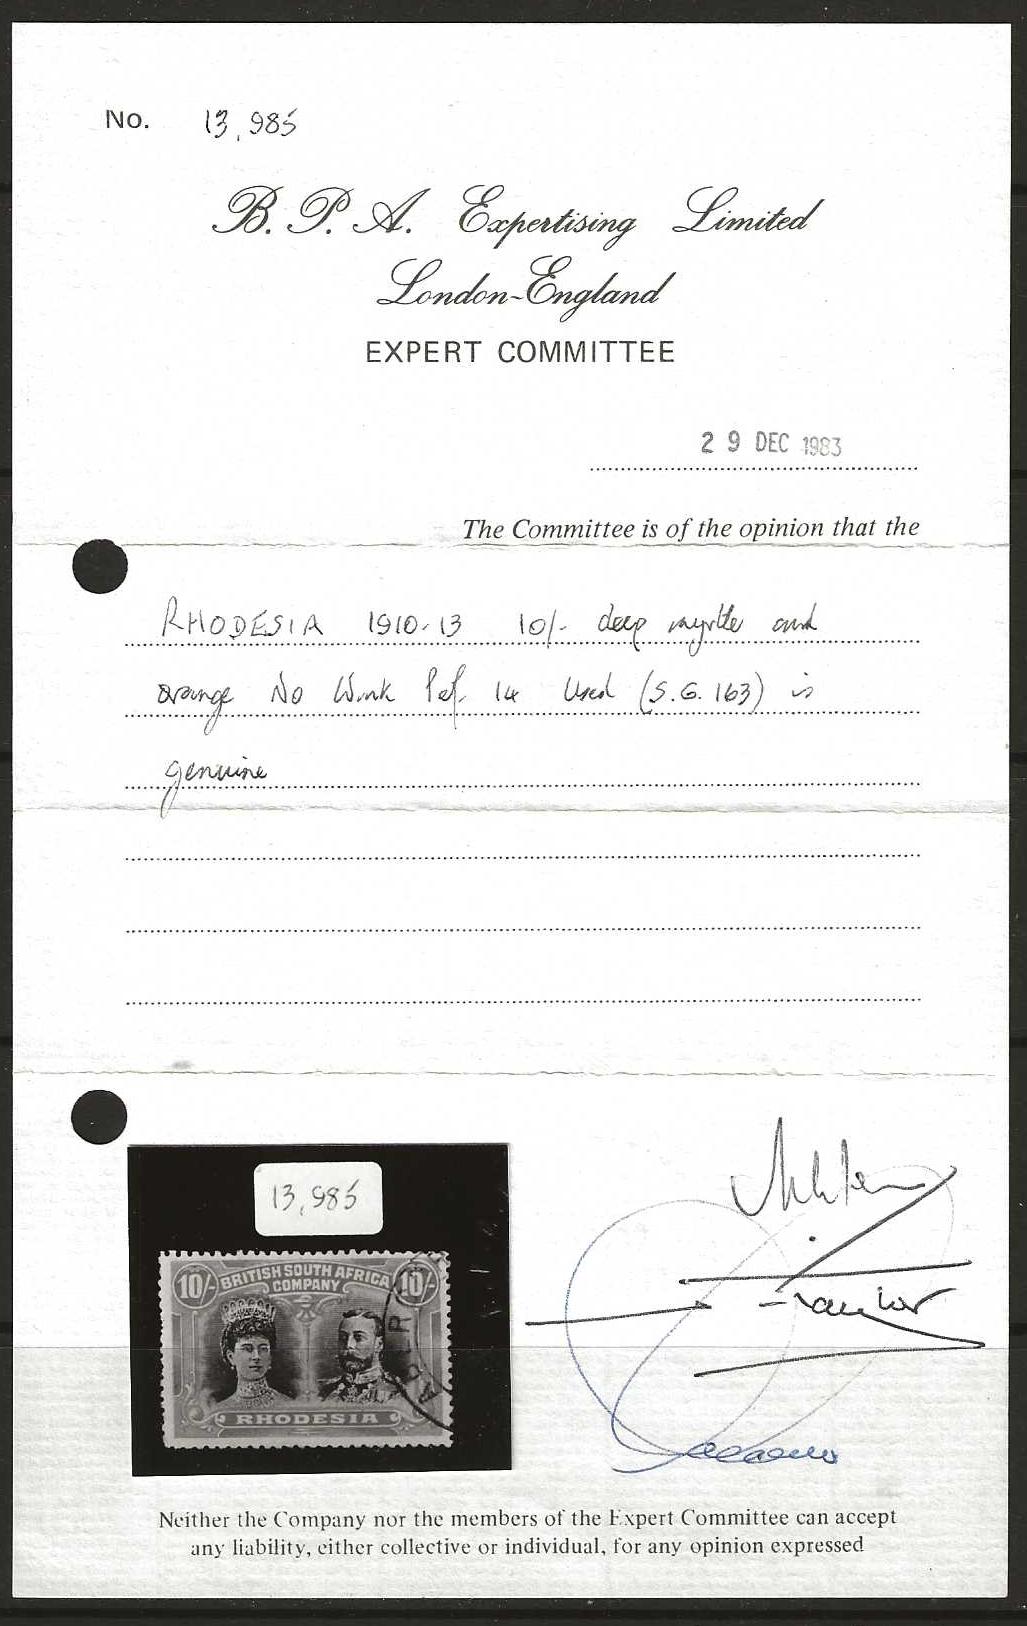 No. 13,985
B. P. A. Expertising Limited
London-England
EXPERT COMMITTEE
29 DEC 1983
The Committee is of the opinion that the
RHODESIA 1910-13 10/- deep myrtle and
orange No Wmk Perf. 14 Used (S.G. 163) is
genuine
13,985
10/- BRITISH SOUTH AFRICA 10/-
COMPANY
RHODESIA
Neither the Company nor the members of the Expert Committee can accept
any liability, either collective or individual, for any opinion expressed